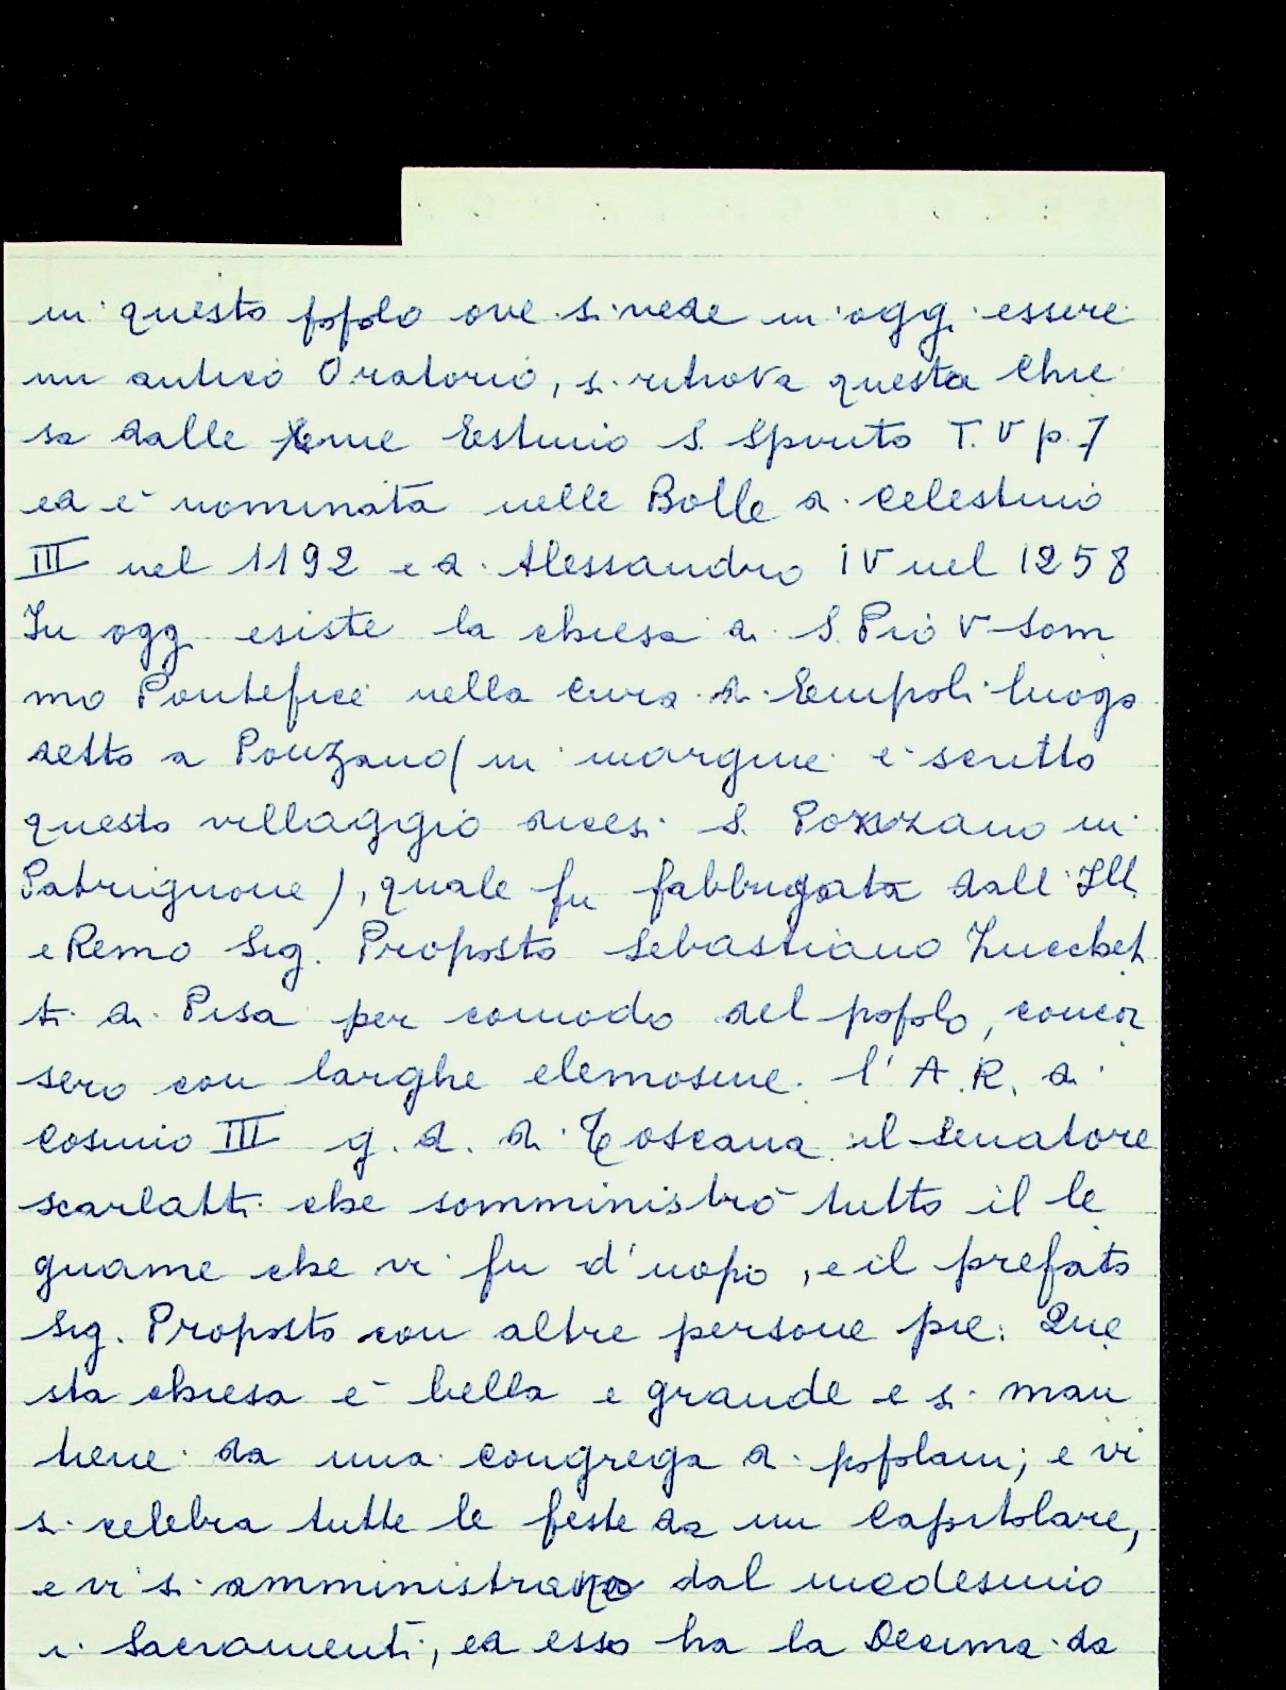 in questo popolo ove si vede in oggi essere
un antico Oratorio, si ritrova questa Chie
sa dalle Estimio S. Spirito T. V p. 7
ed è nominata nelle Bolle di Celestino
III nel 1192 e di Alessandro IV nel 1258
In oggi esiste la chiesa di S. Pio V Som
mo Pontefice nella cura di Empoli luogo
detto a Ponzano (in margine è scritto
questo villaggio dicesi S. Pozzano in
Patrignone), quale fu fabbrigata dall' Ill.
e Remo Sig. Proposto Sebastiano Zucchet
ti di Pisa per comodo del popolo, concor
sero con larghe elemosine l'A.R. di
Cosimo III g. d. di Toscana il Senatore
Scarlatti che somministrò tutto il le
gname che vi fu d'uopo, e il prefato
Sig. Proposto con altre persone pie: Que
sta chiesa è bella e grande e si man
tiene da una congrega di popolani; e vi
si celebra tutte le feste da un Capitolare,
e vi si amministrano dal medesimo
i Sacramenti, ed esso ha la Decima da